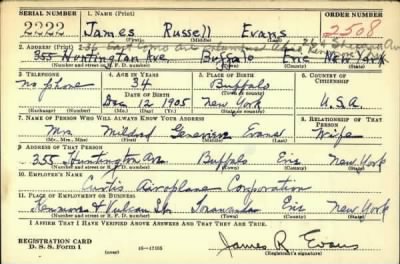 SERIAL NUMBER 1. NAME (Print) ORDER NUMBER
2222 James Russell Evans 2508
(First) (Middle) (Last)
2. ADDRESS (Print)
355 Huntington Ave. Buffalo Erie New York
(Number and street or R. F. D. number) (Town) (County) (State)
3. TELEPHONE 4. AGE IN YEARS 5. PLACE OF BIRTH 6. COUNTRY OF CITIZENSHIP
no phone 34 Buffalo
DATE OF BIRTH (Town or county)
Dec 12 1905 New York U.S.A.
(Exchange) (Number) (Mo.) (Day) (Yr.) (State or country)
7. NAME OF PERSON WHO WILL ALWAYS KNOW YOUR ADDRESS 8. RELATIONSHIP OF THAT PERSON
Mrs Mildred Genevieve Evans Wife
(Mr., Mrs., Miss) (First) (Middle) (Last)
9. ADDRESS OF THAT PERSON
355 Huntington Ave Buffalo Erie New York
(Number and street or R. F. D. number) (Town) (County) (State)
10. EMPLOYER'S NAME
Curtis Airoplane Corporation
11. PLACE OF EMPLOYMENT OR BUSINESS
Kenmore & Vulcan Sts. Tonawanda Erie New York
(Number and street or R. F. D. number) (Town) (County) (State)
I AFFIRM THAT I HAVE VERIFIED ABOVE ANSWERS AND THAT THEY ARE TRUE.
REGISTRATION CARD
D. S. S. Form 1 16-17105 James R Evans
(Registrant's signature)